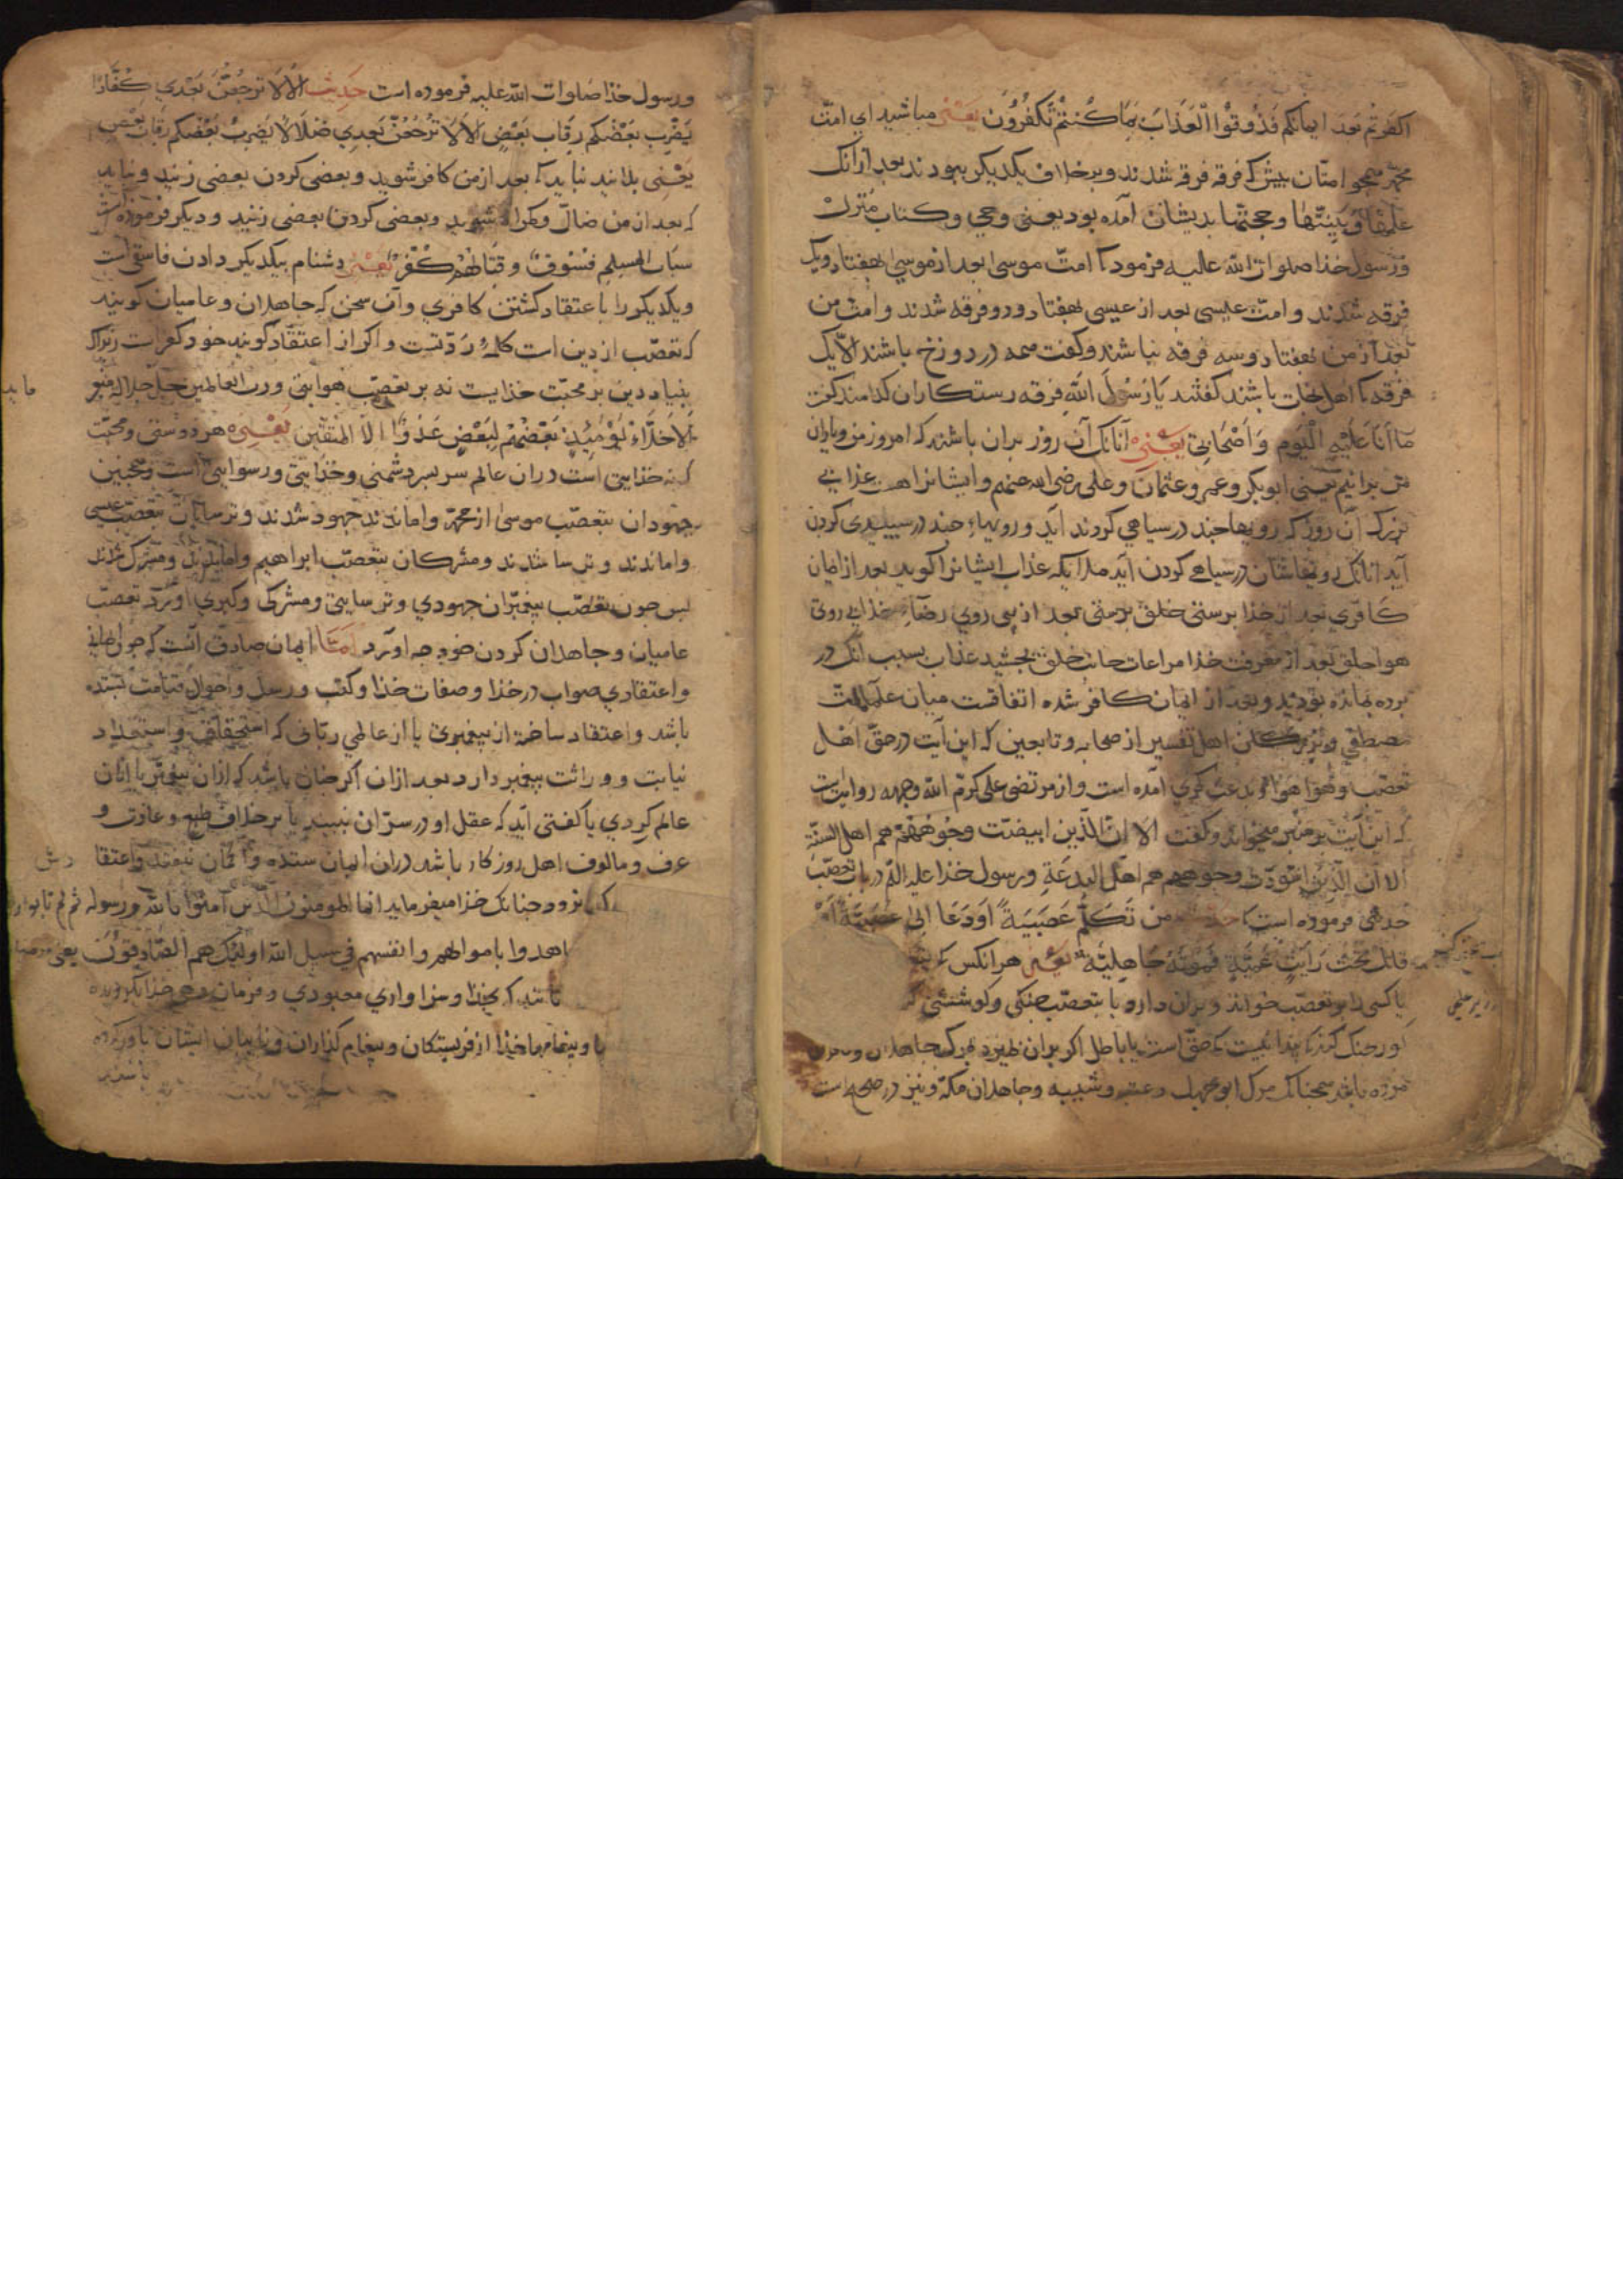 اكفرتم بعد ايمانكم فذوقوا العذاب بما كنتم تكفرون يعنى مباشيد اى امت
محمد همجو امتان بيش ك فرقه فرقه شدند و بر خلاف يكديكر ببودند بعد ازانك
علمها و بينتها و حجتها بديشان آمده بود يعنى وحى و كتاب منزل
و رسول خذا صلوات الله عليه فرمود كا امت موسى بعد از موسى بهفتاد ويك
فرقه شدند و امت عيسى بعد از عيسى بهفتاد و دو فرقه شدند و امت من
بعد از من بهفتاد و سه فرقه بباشند و كفت همه در دوزخ باشند الا يك
فرقه كا اهل نجات باشند كفتند يا رسول الله فرقه رستكاران كدامند كفت
ما انا عليه اليوم و اصحابى يعنى آنانك آن روز بران باشند كه امروز من و ياران
من برانيم يعنى ابوبكر و عمر و عثمان و على رضى الله عنهم و ايشانراست عذابى
بزرك آن روز كه رويها جند در سياهى كردند آيد و رويهاء جند در سبيدى كردن
آيد آنانك رويهاشان در سياهى كردن آيد ملايكه عذاب ايشانرا كويند بعد از ايمان
كافرى بعد از خذا برستى خلق برستى بعد از بى روى رضاء خذا بى روى
هوا خلق بعد از معرفت خذا مراعات جانب خلق بجشيد عذاب بسبب آنك در
برده بمانده بوديد و بعد از ايمان كافر شده اتفاقست ميان علماء امت
مصطفى و بزركان اهل تفسير از صحابه و تابعين كه اين آيت در حق اهل
تعصب و هوا آمده است و از مرتضى على كرم الله وجهه روايتست
كه اين آيت بر منبر ميخواند و كفت الا ان الذين ابيضت وجوههم هم اهل السنة
الا ان الذين اسودت وجوههم هم اهل البدعة و رسول خذا عليه السلم در باب تعصب
حديثى فرموده است كا حديث من تكلم عصبية او دعا الى عصبية او
قاتل تحت راية عمية فموته جاهلية يعنى هر انكس كه
يا كسى را بر تعصب خواند و بران دارد يا بتعصب جنكى و كوششى
كور جنك كند كا بدا نيست كه حق است يا باطل اكر بران بميرد مرك جاهلان
مرده باشد همجنانك مرك ابوجهل و عتبه و شيبه و جاهلان مكه و نيز در صحيح است
و رسول خذا صلوات الله عليه فرموده است حديث الا لا ترجعن بعدى كفارا
يضرب بعضكم رقاب بعض الا لا ترجعن بعدى ضلالا يضرب بعضكم رقاب بعض
يعنى بدانيد نبايد كا بعد از من كافر شويد و بعضى كردن بعضى زنيد و نبايد
كه بعد از من ضال و كمراه شويد و بعضى كردن بعضى زنيد و ديكر فرموده است
سباب المسلم فسوق و قتالهم كفر يعنى دشنام بيكديكر دادن فاسقى است
و يكديكر را باعتقاد كشتن كافرى و آن سخن كه جاهلان و عاميان كويند
كه تعصب از دين است كلمهٔ ردتست و اكر از اعتقاد كويند خود كفرات زيراك
بنياد دين بر محبت خذاييست نه بر تعصب هوايتى و رب العالمين جل جلاله
الاخلاء يومئذ بعضهم لبعض عدو الا المتقين يعنى هر دوستى و محبت
كه نه خذايى است دران عالم سر بسر دشمنى و رسوايى است و همجنين
جهودان بتعصب موسى از محمد واماندند جهود شدند و ترسايان بتعصب عيسى
واماندند و ترسا شدند و مشركان بتعصب ابراهيم واماندند و مشرك شدند
بس جون تعصب بيغمبران جهودى و ترسايى و مشركى و كبرى آورد تعصب
عاميان و جاهلان كردن خود جه آورد امّا ايمان صادق آنست كه
و اعتقادى صواب در خذا و صفات خذا و كتب و رسل و احوال قيامت
باشد و اعتقاد ساخته از بيغمبرى يا از عالمى ربانى كه استحقاق و استعداد
نيابت و وراثت بيغمبر دارد بعد ازان اكر جنان باشد كه ازان بيغمبر يا ازان
عالم كردى يا كفتى آيد كه عقل او در سر آن نبيند يا بر خلاف طبع و عادت و
عرف و مالوف اهل روزكار باشد دران ايمان ستده و كمان نيفتد و اعتقا دش
كه نرود جنانك خذا ميفرمايد انما المومنون الذين آمنوا بالله و رسوله ثم لم يرتابوا
اهدوا باموالهم و انفسهم فى سبيل الله اولئك هم الصادقون يعنى
باشد كه بخذا و سزاوارى معبودى و فرمان دهى خذا بكرويده
و بيغامهاء خذا از فريستكان و بيغام كذاران و نايبان ايشان باور كرده
باشند